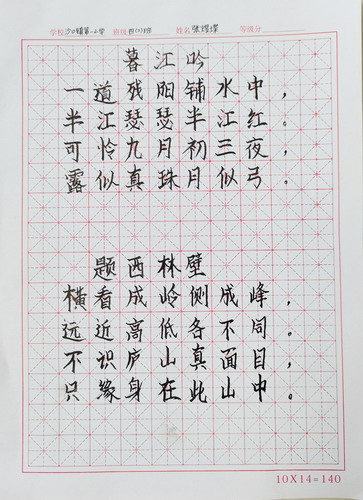 学校 沙口镇第一小学 班级 四(3)班 姓名 张煜 等级分
暮江吟
一道残阳铺水中，
半江瑟瑟半江红。
可怜九月初三夜，
露似真珠月似弓。
题西林壁
横看成岭侧成峰，
远近高低各不同。
不识庐山真面目，
只缘身在此山中。
10X14=140